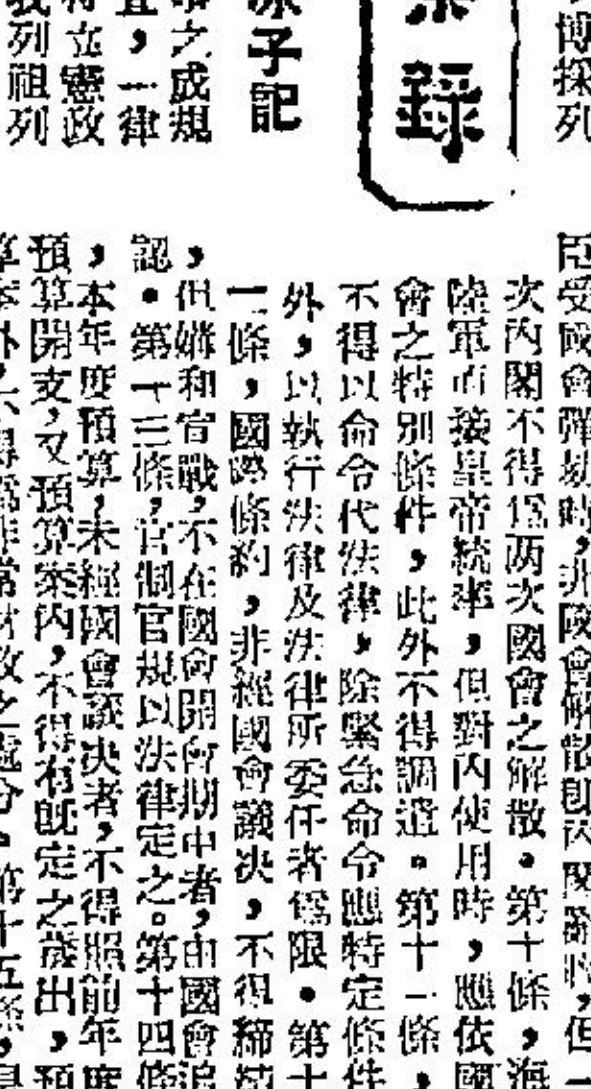 博採列
錄
冰子記
之成規
，一律
立憲政
列祖列
臣受國會彈劾時，非國會解散卽內閣辭職，但一
次內閣不得爲两次國會之解散。第十條，海
陸軍直接皇帝統率，但對內使用時，應依國
會之特別條件，此外不得調遣。第十一條，
不得以命令代法律，除緊急命令應特定條件
外，以執行法律及法律所委任者爲限。第十
二條，國際條約，非經國會議決，不得締結
，但媾和宣戰，不在國會開會期中者，由國會追
認。第十三條，官制官規以法律定之。第十四條
，本年度預算，未經國會議決者，不得照前年度
預算開支，又預算案內，不得有旣定之歲出，預
算案外，不得爲非常財政之處分。第十五條，